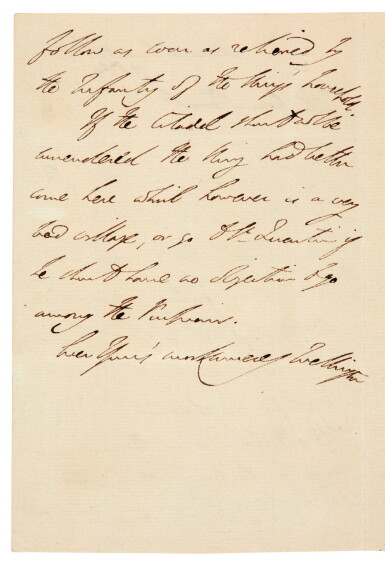 follow as soon as relieved by
the Infantry of the King's household.
If the Citadel should not be
surrendered the King had better
come here which however is a very
bad village, or go to St. Quentin if
he should have no objection to go
among the Prussians.
Ever Yours most sincerely Wellington